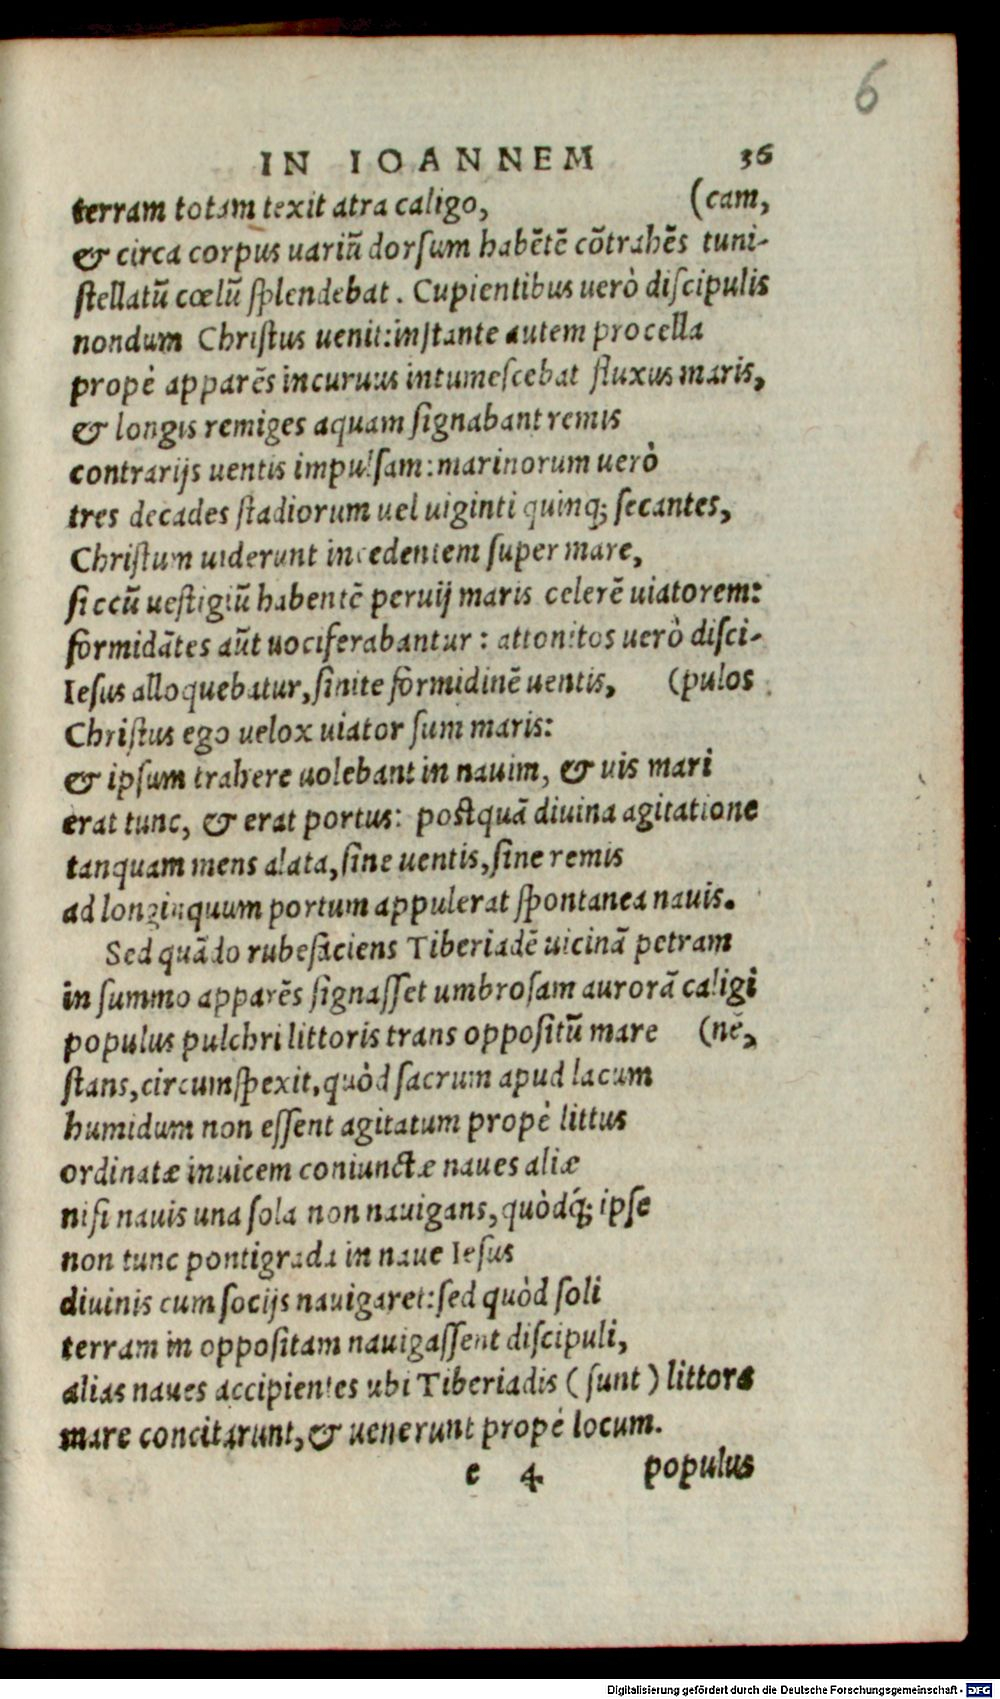 6
IN IOANNEM 36
terram totam texit atra caligo, (cam,
& circa corpus uariũ dorſum habẽtẽ cõtrahẽs tuni-
ſtellatũ cœlũ ſplendebat. Cupientibus uerò diſcipulis
nondum Chriſtus uenit: inſtante autem procella
propè apparẽs incuruus intumeſcebat fluxus maris,
& longis remiges aquam ſignabant remis
contrarijs uentis impulſam: marinorum uerò
tres decades ſtadiorum uel uiginti quinq; ſecantes,
Chriſtum uiderunt incedentem ſuper mare,
ſiccũ ueſtigiũ habentẽ peruij maris celerẽ uiatorem:
formidãtes aũt uociferabantur: attonitos uerò diſci-
Ieſus alloquebatur, ſinite formidinẽ uentis, (pulos
Chriſtus ego uelox uiator ſum maris:
& ipſum trahere uolebant in nauim, & uis mari
erat tunc, & erat portus: poſtquã diuina agitatione
tanquam mens alata, ſine uentis, ſine remis
ad longinquum portum appulerat ſpontanea nauis.
Sed quãdo rubefaciens Tiberiadẽ uicinã petram
in ſummo apparẽs ſignaſſet umbroſam aurorã caligi
populus pulchri littoris trans oppoſitũ mare (nẽ,
ſtans, circumſpexit, quòd ſacrum apud lacum
humidum non eſſent agitatum propè littus
ordinatæ inuicem coniunctæ naues aliæ
niſi nauis una ſola non nauigans, quòdq́; ipſe
non tunc pontigrada in naue Ieſus
diuinis cum ſocijs nauigaret: ſed quòd ſoli
terram in oppoſitam nauigaſſent diſcipuli,
alias naues accipientes ubi Tiberiadis (ſunt) littora
mare concitarunt, & uenerunt propè locum.
e 4 populus
Digitalisierung gefördert durch die Deutsche Forschungsgemeinschaft - DFG